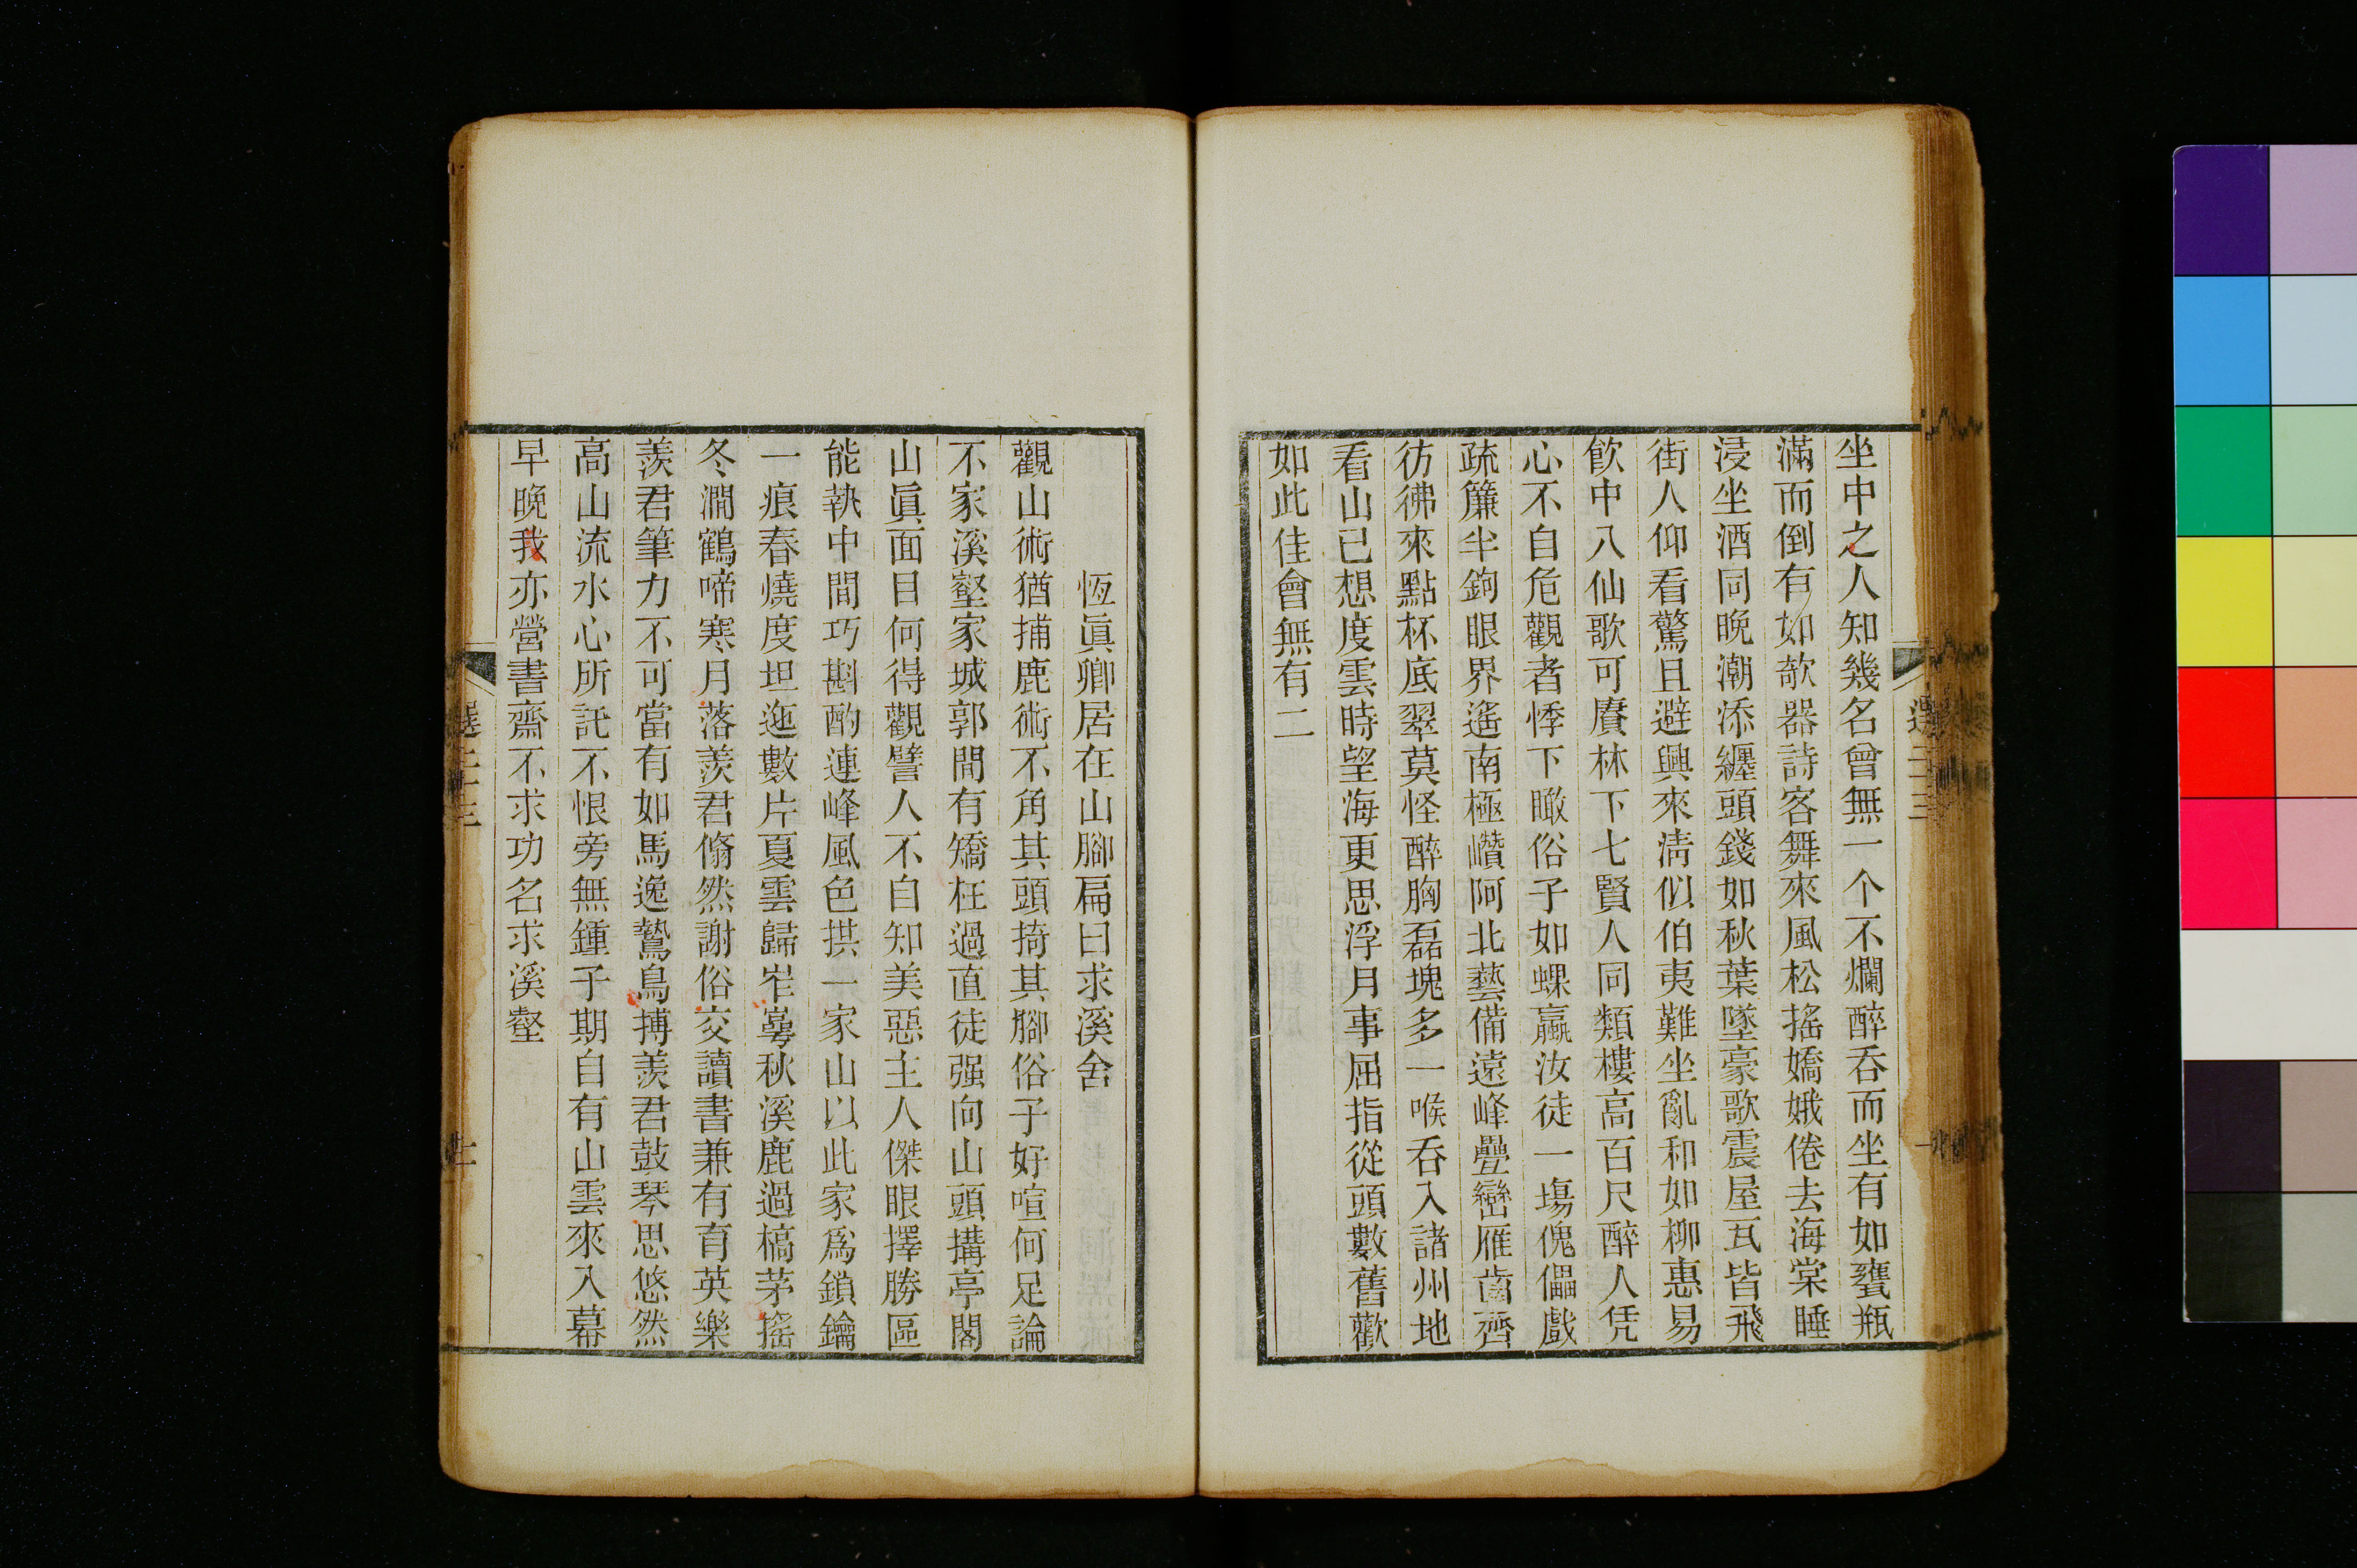 坐中之人知幾名曾無一个不爛醉呑而坐有如甕瓶
滿而倒有如欹器詩客舞來風松搖嬌娥倦去海棠睡
浸坐酒同晚潮添纏頭錢如秋葉墜豪歌震屋瓦皆飛
街人仰看驚且避興來淸似伯夷難坐亂和如柳惠易
飮中八仙歌可賡林下七賢人同類樓高百尺醉人凭
心不自危觀者悸下瞰俗子如蜾蠃汝徒一塲傀儡戲
疏簾半鉤眼界遙南極巑阿北藝備遠峰疊巒雁齒齊
彷彿來點杯底翠莫怪醉胸磊塊多一喉呑入諸州地
看山已想度雲時望海更思浮月事屈指從頭數舊歡
如此佳會無有二
恆眞卿居在山腳扁曰求溪舍
觀山術猶捕鹿術不角其頭掎其腳俗子好喧何足論
不家溪壑家城郭間有矯枉過直徒强向山頭搆亭閣
山眞面目何得觀譬人不自知美惡主人傑眼擇勝區
能執中間巧斟酌連峰風色拱一家山以此家爲鎖鑰
一痕春燒度坦迤數片夏雲歸岝崿秋溪鹿過槁茅搖
冬澗鶴啼寒月落羨君翛然謝俗交讀書兼有育英樂
羨君筆力不可當有如馬逸鷙鳥搏羨君鼓琴思悠然
高山流水心所託不恨旁無鍾子期自有山雲來入幕
早晚我亦營書齋不求功名求溪壑